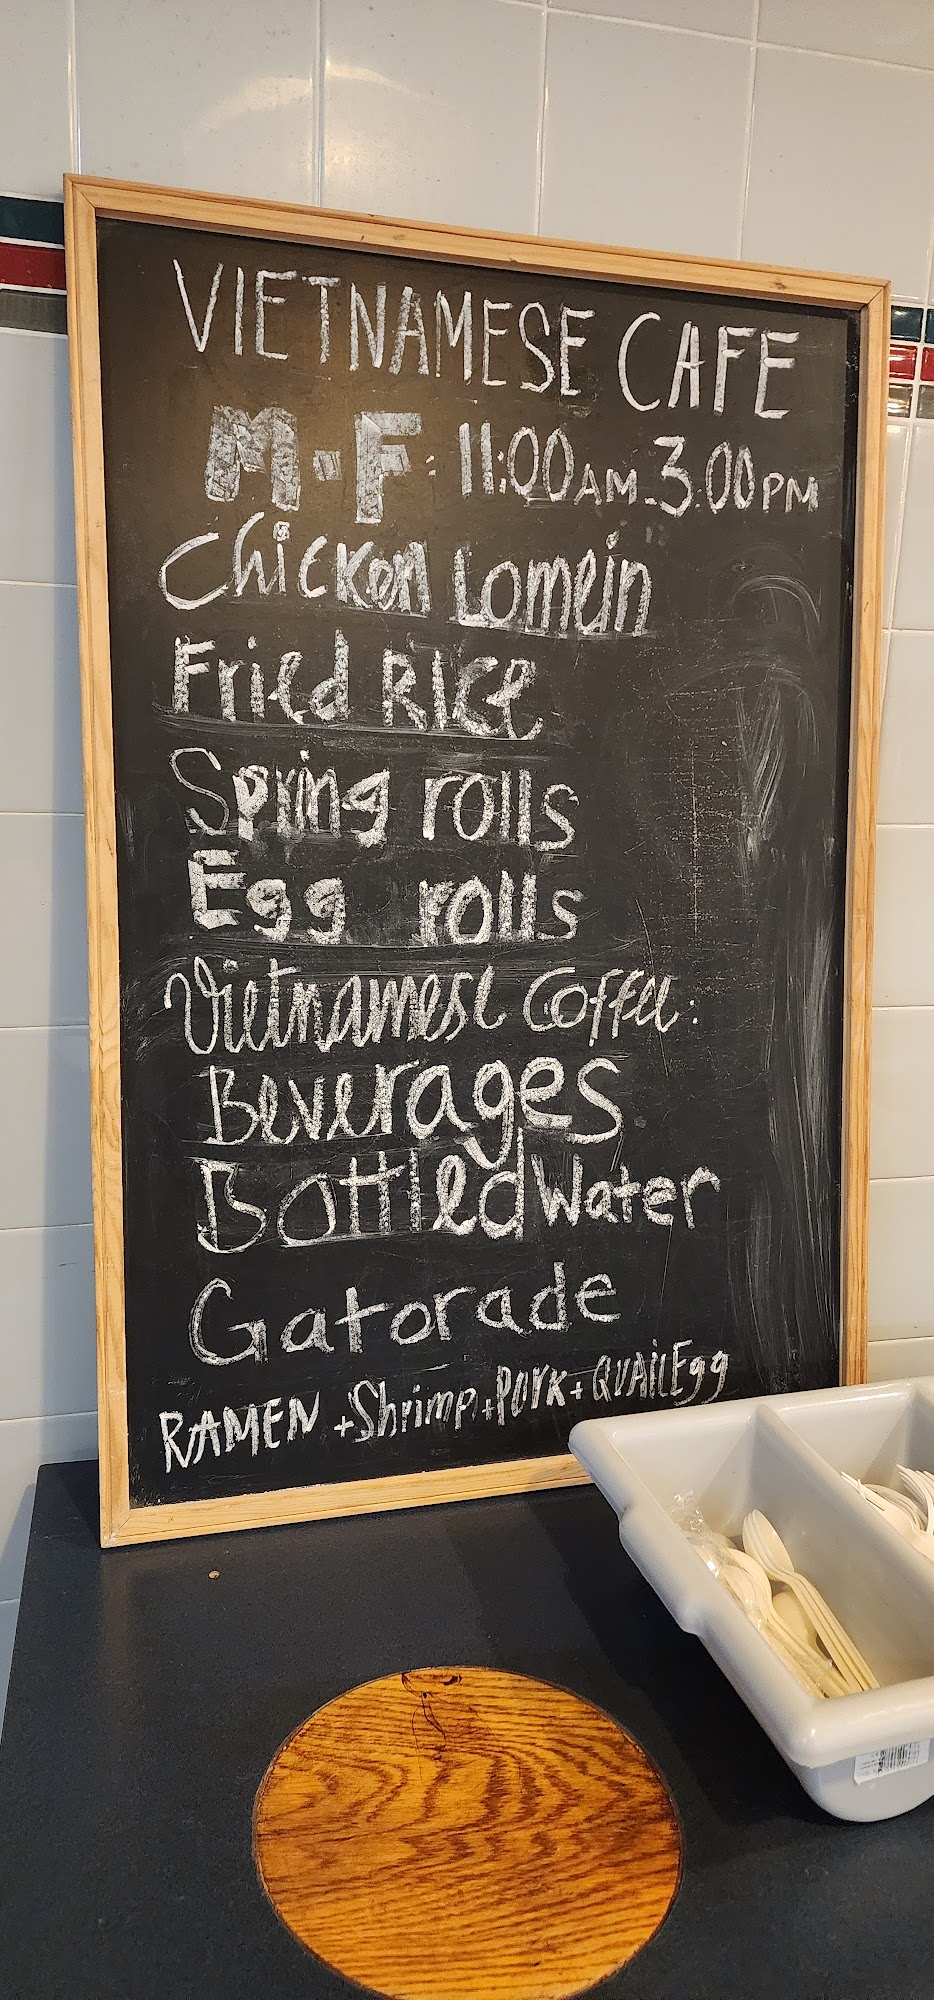 VIETNAMESE CAFE
M-F: 11:00AM-3.00PM
Chicken Lomein
Fried Rice
Spring rolls
Egg rolls
Vietnamese Coffee:
Beverages
Bottled Water
Gatorade
RAMEN +Shrimp+Pork+QUAILEgg